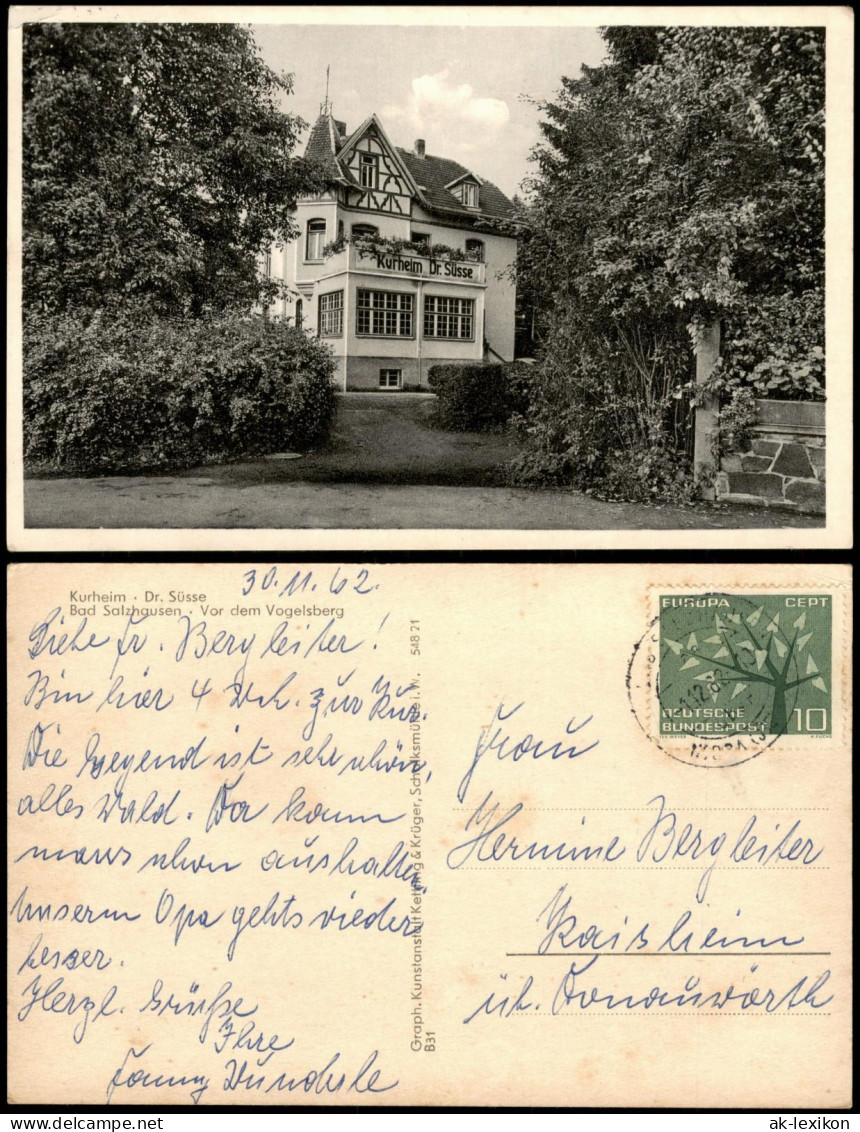 Kurheim Dr. Süsse
Kurheim · Dr. Süsse
Bad Salzhausen · Vor dem Vogelsberg
30.11.62.
Liebe Fr. Bergleiter!
Bin hier 4 Wch. zur Kur.
Die Gegend ist sehr schön,
alles Wald. Da kann
mans schon aushalten
Unserm Opa gehts wieder
besser.
Herzl. Grüße
Ihre
Fanny Wunderle
Graph. Kunstanstalt Kettling & Krüger, Schalksmühle i. W. 548 21
B31
EUROPA CEPT
DEUTSCHE
BUNDESPOST 10
Frau
Hermine Bergleiter
Kaisheim
üb. Donauwörth
ak-ansichtskarten.de
ak-lexikon